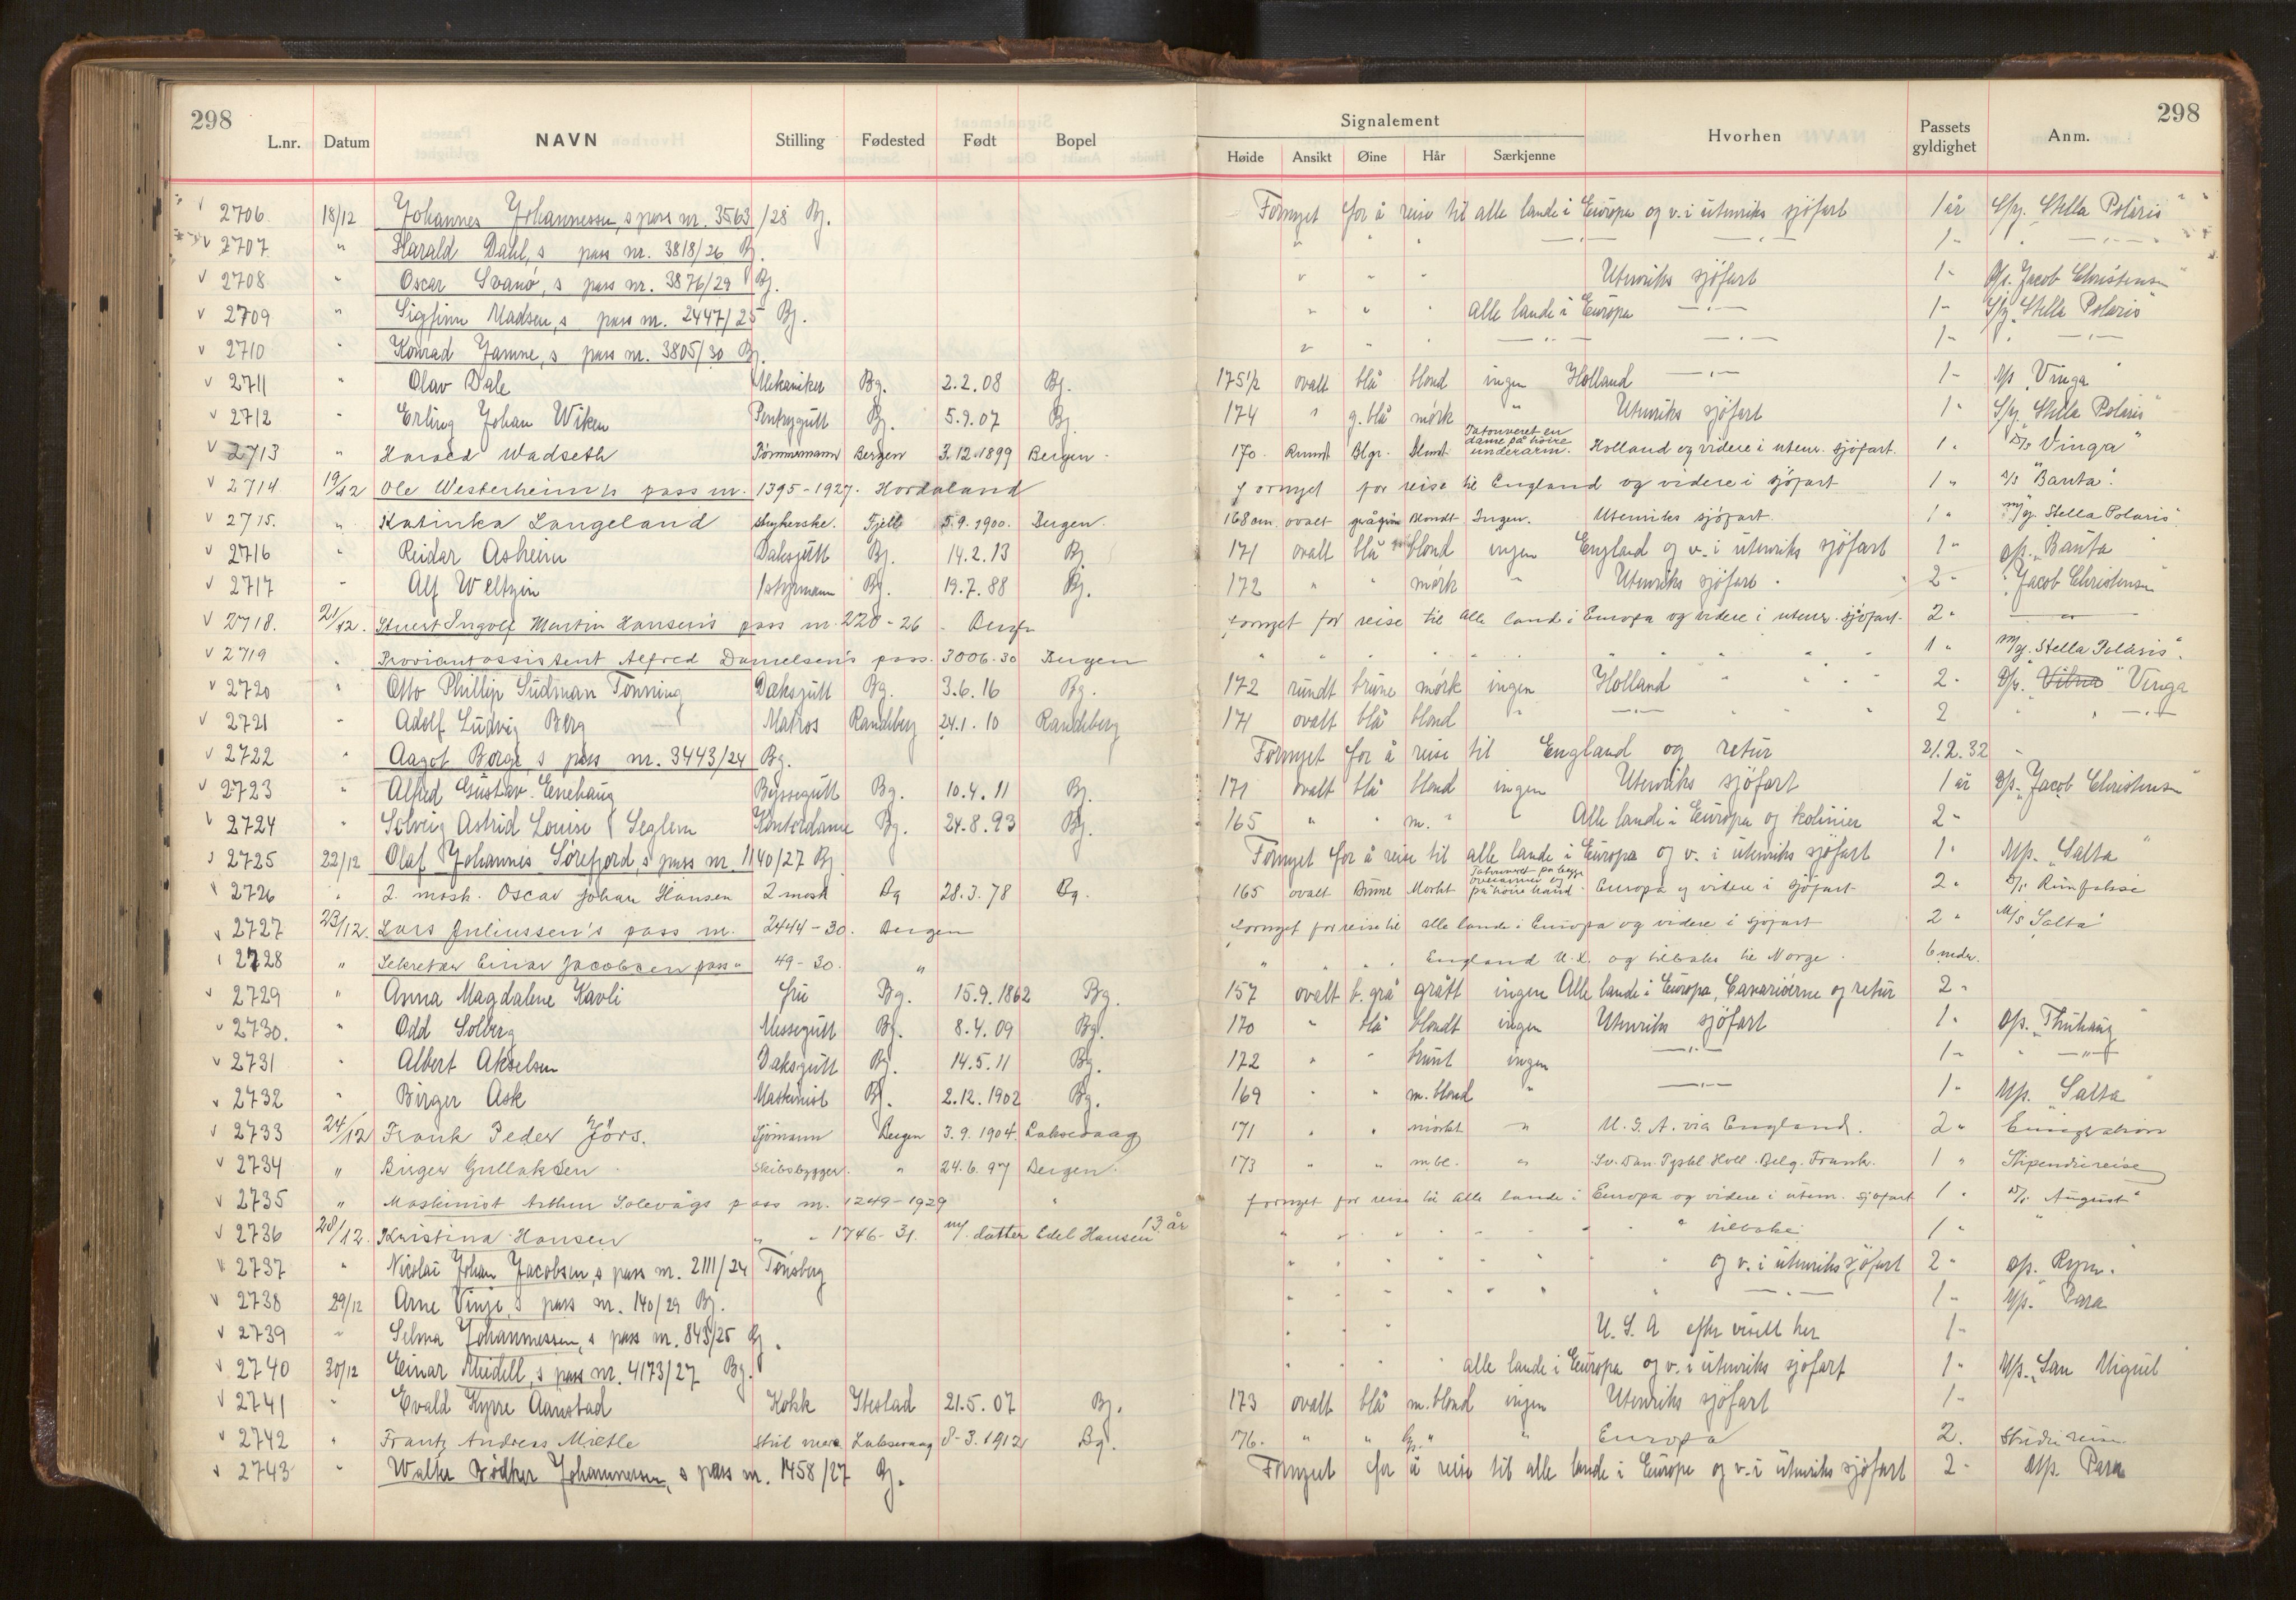 298
298
L.nr. Datum NAVN Stilling Fødested Født Bopel Signalement Hvorhen Passets gyldighet Anm.
Høide Ansikt Øine Hår Særkjenne
2706 18/12 Johannes Johannessen, s pass nr. 3563/28 Bg. Fornyet for å reise til alle lande i Europa og v. i utenriks sjöfart 1 år S/y. "Stella Polaris"
2707 " Harald Dahl, s pass nr. 3818/26 Bg. " " " —"— —"— 1 " " —"—
2708 " Oscar Svanö, s pass nr. 3876/29 Bg. " " " Utenriks sjöfart 1 " D/s. "Jacob Christensen"
2709 " Sigfinn Madsen, s pass nr. 2447/25 Bg. " " " alle lande i Europa —"— 1 " S/y. "Stella Polaris"
2710 " Konrad Jamne, s pass nr. 3805/30 Bg. " " " —"— —"— 1 " " —"—
2711 " Olav Dale Mekaniker Bg. 2.2.08 Bg. 175 1/2 ovalt blå blond ingen Holland —"— 1 " D/s "Vinga"
2712 " Erling Johan Wiken Pentrygutt Bg. 5.9.07 Bg. 174 " g.blå mörk " Utenriks sjöfart 1 " S/y. "Stella Polaris"
2713 " Harald Wadseth Tömmermann Bergen 3.12.1899 Bergen 170 Rundt Blgr. Blondt Tatouveret en dame på höire underarm. Holland og videre i utenr. sjöfart. 1 " D/s "Vinga"
2714 19/12 Ole Westerheim's pass nr. 1395-1927. Hordaland Fornyet for reise til England og videre i sjöfart 1 " D/s "Banta".
2715. " Katinka Langeland Fjell 5.9.1900. Bergen. 168 cm. ovalt Blondt Ingen. Utenriks sjöfart. 1 " M/y. "Stella Polaris"
2716 " Reidar Asheim Daksgutt Bg. 14.2.13 Bg. 171 ovalt blå blond ingen England og v. i utenriks sjöfart 1 " D/s. "Banta"
2717 " Alf Weltzin 1 styrmann Bg. 19.7.88 Bg. 172 " " mörk " Utenriks sjöfart. 2 " "Jacob Christensen"
2718. 21/12. Stuert Ingolf Martin Hansen's pass nr. 220-26 Bergen Fornyet for reise til alle land i Europa og videre i utenr. sjöfart. 2 " —"—
2719 " Proviantassistent Alfred Danielsen's pass. 3006-30 Bergen " " " " " " 1 " M/y. "Stella Polaris".
2720 " Otto Phillip Südman Tönning Daksgutt Bg. 3.6.16 Bg. 172 rundt brune mörk ingen Holland " " " 2 " D/s. "Vinga
2721 " Adolf Ludvig Berg Matros Randeberg 24.1.10 Randeberg 171 ovalt blå blond " —"— " " " 2 " —"—
2722 " Aagot Borge, s pass nr. 3443/24 Bg. Fornyet for å reise til England og retur 21.2.32
2723 " Alfred Gustav Enehaug Byssegutt Bg. 10.4.11 Bg. 171 ovalt blå blond ingen Utenriks sjöfart 1 år D/s. "Jacob Christensen"
2724 " Solveig Astrid Louise Seglem Kontordame Bg. 24.8.93 Bg. 165 " " m. " " Alle lande i Europa og kolinier 2 "
2725 22/12 Olaf Johannes Sörefjord, s pass nr. 1140/27 Bg. Fornyet for å reise til alle lande i Europa og v. i utenriks sjöfart 1 " M/s. "Salta"
2726 " 2. mask. Oscar Johan Hansen 2 mask Bg 28.3.78 Bg. 165 ovalt Brune Morkt Tatouveret på begge overarmer og på höire hånd. Europa og videre i sjöfart 2 "
2727 23/12. Lars Juliussen's pass nr. 2444-30. Bergen Fornyet for reise til alle lande i Europa og videre i sjöfart 2 " M/s "Salta"
2728 " Sekretær Einar Jacobsen pass " 49-30. " " " " " England U.K. og tilbake til Norge. 6 mdr.
2729 " Anna Magdalene Kavli fru Bg. 15.9.1862 Bg. 157 ovalt b.grå grått ingen Alle lande i Europa, Canariöerne og retur 2 "
2730. " Odd Solberg Messegutt Bg. 8.4.09 Bg. 170 " blå blondt ingen Utenriks sjöfart 1 "
2731 " Albert Akselsen Daksgutt Bg. 14.5.11 Bg. 172 " " brunt ingen —"— 1 " " —"—
2732 " Birger Ask Maskinist Bg. 2.12.1902 Bg. 169 " " m. blond " —"— 1 " M/s. "Salta"
2733 24/12 Frank Peder Jörs. Sjömann Bergen 3.9.1904. Laksevaag 171 " " mörkt " U.S.A. via England. 2 " Emigration
2734 " Birger Gullaksen Skibsbygger. " 24.6.97 Bergen. 173 " " m.bl. " Sv. Dan. Tyskl Holl. Belg. Frankr. 1 " Stipendiereise
2735 " Maskinist Arthur Solevågs pass nr. 1249-1929 " fornyet for reise til alle lande i Europa og videre i utenr. sjöfart 1 " D/s "August"
2736 28/12. Kristina Hansen " " 1746-31. m/ datter Edel Hansen 13 år " " " " " " " tilbake 1 " "
2737 " Nicolai Johan Jacobsen, s pass nr. 2111/24 Tönsberg " " " " " " og v. i utenriks sjöfart 2 "
2738 29/12 Arne Vinje, s pass nr. 140/29 Bg. " " " " " " —"— 1 " M/s. "Para
2739 " Selma Johannessen, s pass nr. 843/25 Bg. " " " U.S.A efter visitt her 1 "
2740 30/12 Einar Meidell, s pass nr. 4173/27 Bg. " " " " alle lande i Europa og v. i utenriks sjöfart 1 " M/s. "San Miguel"
2741 " Evald Kyrre Aanstad Kokk Ibestad 21.5.07 Bg. 173 ovalt blå m. blond ingen Utenriks sjöfart 1 "
2742 " Frantz Andreas Mietle Laksevaag 8-3.1912 Bg. 176. " " " " Europa 2. Studie reise
2743 " Walter Bödker Johannessen, s pass nr. 1458/27 Bg. Fornyet for å reise til alle lande i Europa og v. i utenriks sjöfart 2 " M/s. Para